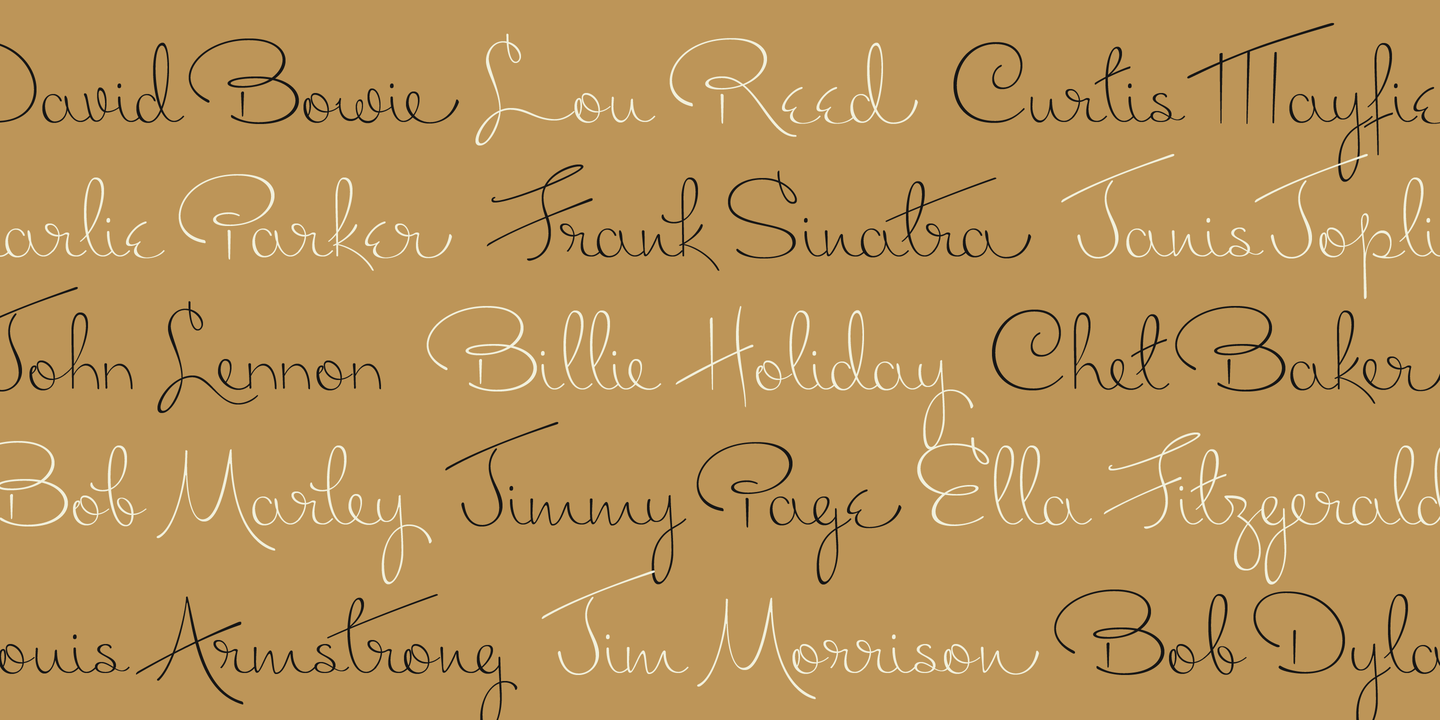 David Bowie Lou Reed Curtis Mayfie
arlie Parker Frank Sinatra Janis Jopli
John Lennon Billie Holiday Chet Baker
Bob Marley Jimmy Page Ella Fitzgerald
ouis Armstrong Jim Morrison Bob Dyla